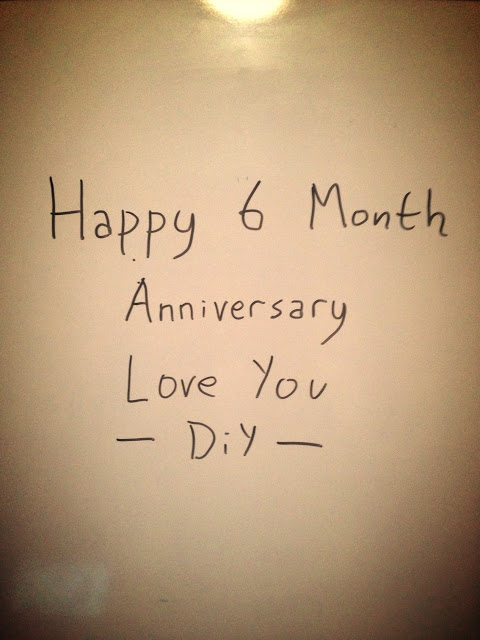 Happy 6 Month
Anniversary
Love You
— DiY —